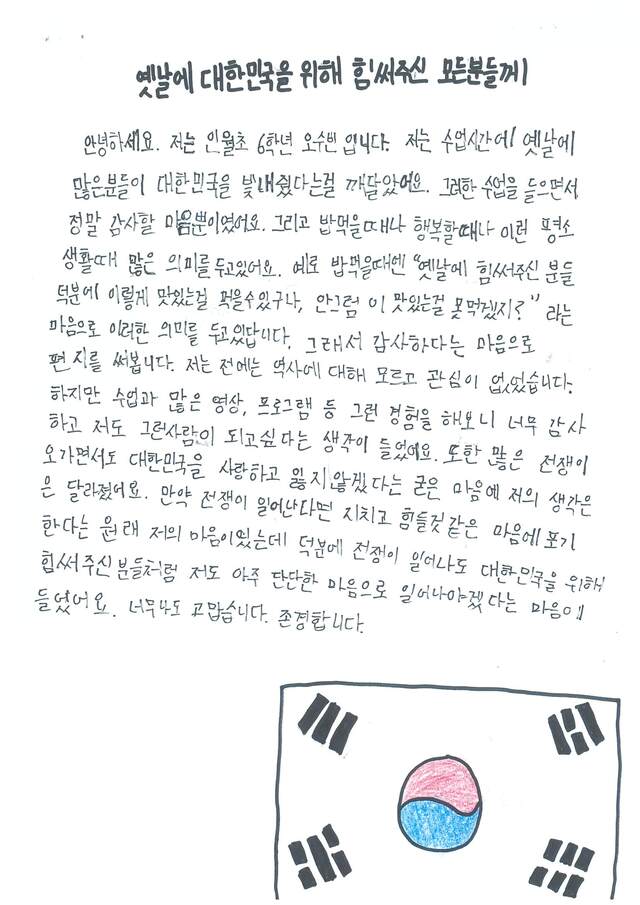 옛날에 대한민국을 위해 힘써주신 모든분들께
안녕하세요. 저는 인월초 6학년 오수빈 입니다. 저는 수업시간에 옛날에
많은분들이 대한민국을 빛내줬다는걸 깨달았어요. 그러한 수업을 들으면서
정말 감사할 마음뿐이였어요. 그리고 밥먹을때나 행복할때나 이런 평소
생활때 많은 의미를 두고있어요. 예로 밥먹을때엔 "옛날에 힘써주신 분들
덕분에 이렇게 맛있는걸 먹을수있구나, 안그럼 이 맛있는걸 못먹겠지?" 라는
마음으로 이러한 의미를 두고있답니다. 그래서 감사하다는 마음으로
편지를 써봅니다. 저는 전에는 역사에 대해 모르고 관심이 없었습니다.
하지만 수업과 많은 영상, 프로그램 등 그런 경험을 해보니 너무 감사
하고 저도 그런사람이 되고싶다는 생각이 들었어요. 또한 많은 전쟁이
오가면서도 대한민국을 사랑하고 잃지않겠다는 굳은 마음에 저의 생각은
은 달라졌어요. 만약 전쟁이 일어난다면 지치고 힘들것같은 마음에 포기
한다는 원래 저의 마음이있는데 덕분에 전쟁이 일어나도 대한민국을 위해
힘써주신분들처럼 저도 아주 단단한 마음으로 일어나야겠다는 마음이
들었어요. 너무나도 고맙습니다. 존경합니다.